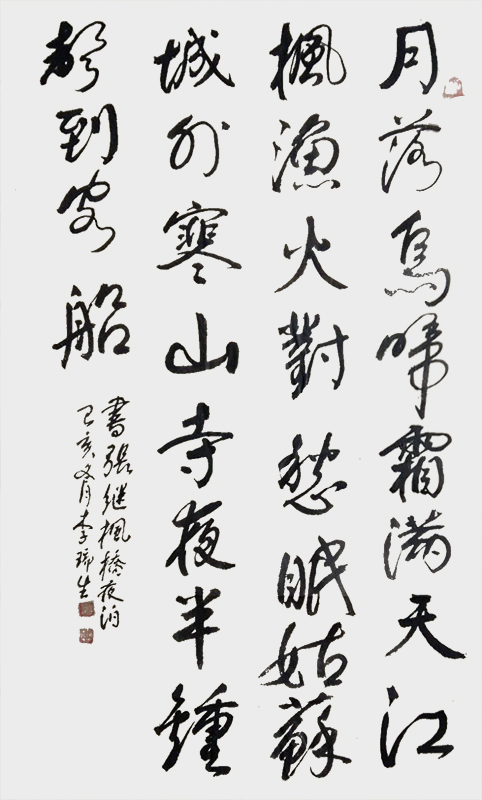 月落烏啼霜滿天江
楓漁火對愁眠姑蘇
城外寒山寺夜半鍾
聲到客船
書張継楓橋夜泊
己亥月李瑞生